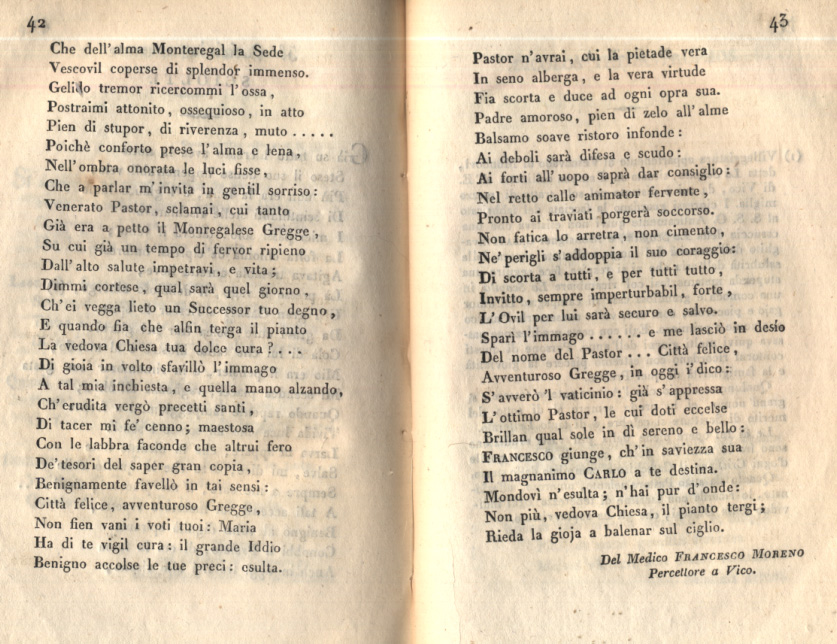 42
Che dell'alma Monteregal la Sede
Vescovil coperse di splendor immenso.
Gelido tremor ricercommi l'ossa,
Postraimi attonito, ossequioso, in atto
Pien di stupor, di riverenza, muto .....
Poichè conforto prese l'alma e lena,
Nell'ombra onorata le luci fisse,
Che a parlar m'invita in gentil sorriso:
Venerato Pastor, sclamai, cui tanto
Già era a petto il Monregalese Gregge,
Su cui già un tempo di fervor ripieno
Dall'alto salute impetravi, e vita;
Dimmi cortese, qual sarà quel giorno,
Ch'ei vegga lieto un Successor tuo degno,
E quando fia che alfin terga il pianto
La vedova Chiesa tua dolce cura?...
Di gioia in volto sfavillò l'immago
A tal mia inchiesta, e quella mano alzando,
Ch'erudita vergò precetti santi,
Di tacer mi fe' cenno; maestosa
Con le labbra faconde che altrui fero
De'tesori del saper gran copia,
Benignamente favellò in tai sensi:
Città felice, avventuroso Gregge,
Non fien vani i voti tuoi: Maria
Ha di te vigil cura: il grande Iddio
Benigno accolse le tue preci: esulta.
43
Pastor n'avrai, cui la pietade vera
In seno alberga, e la vera virtude
Fia scorta e duce ad ogni opra sua.
Padre amoroso, pien di zelo all'alme
Balsamo soave ristoro infonde:
Ai deboli sarà difesa e scudo:
Ai forti all'uopo saprà dar consiglio:
Nel retto calle animator fervente,
Pronto ai traviati porgerà soccorso.
Non fatica lo arretra, non cimento,
Ne'perigli s'addoppia il suo coraggio:
Di scorta a tutti, e per tutti tutto,
Invitto, sempre imperturbabil, forte,
L'Ovil per lui sarà securo e salvo.
Sparì l'immago ...... e me lasciò in desio
Del nome del Pastor... Città felice,
Avventuroso Gregge, in oggi i'dico:
S'avverò 'l vaticinio: già s'appressa
L'ottimo Pastor, le cui doti eccelse
Brillan qual sole in dì sereno e bello:
FRANCESCO giunge, ch'in saviezza sua
Il magnanimo CARLO a te destina.
Mondovì n'esulta; n'hai pur d'onde:
Non più, vedova Chiesa, il pianto tergi;
Rieda la gioja a balenar sul ciglio.
Del Medico FRANCESCO MORENO
Percettore a Vico.